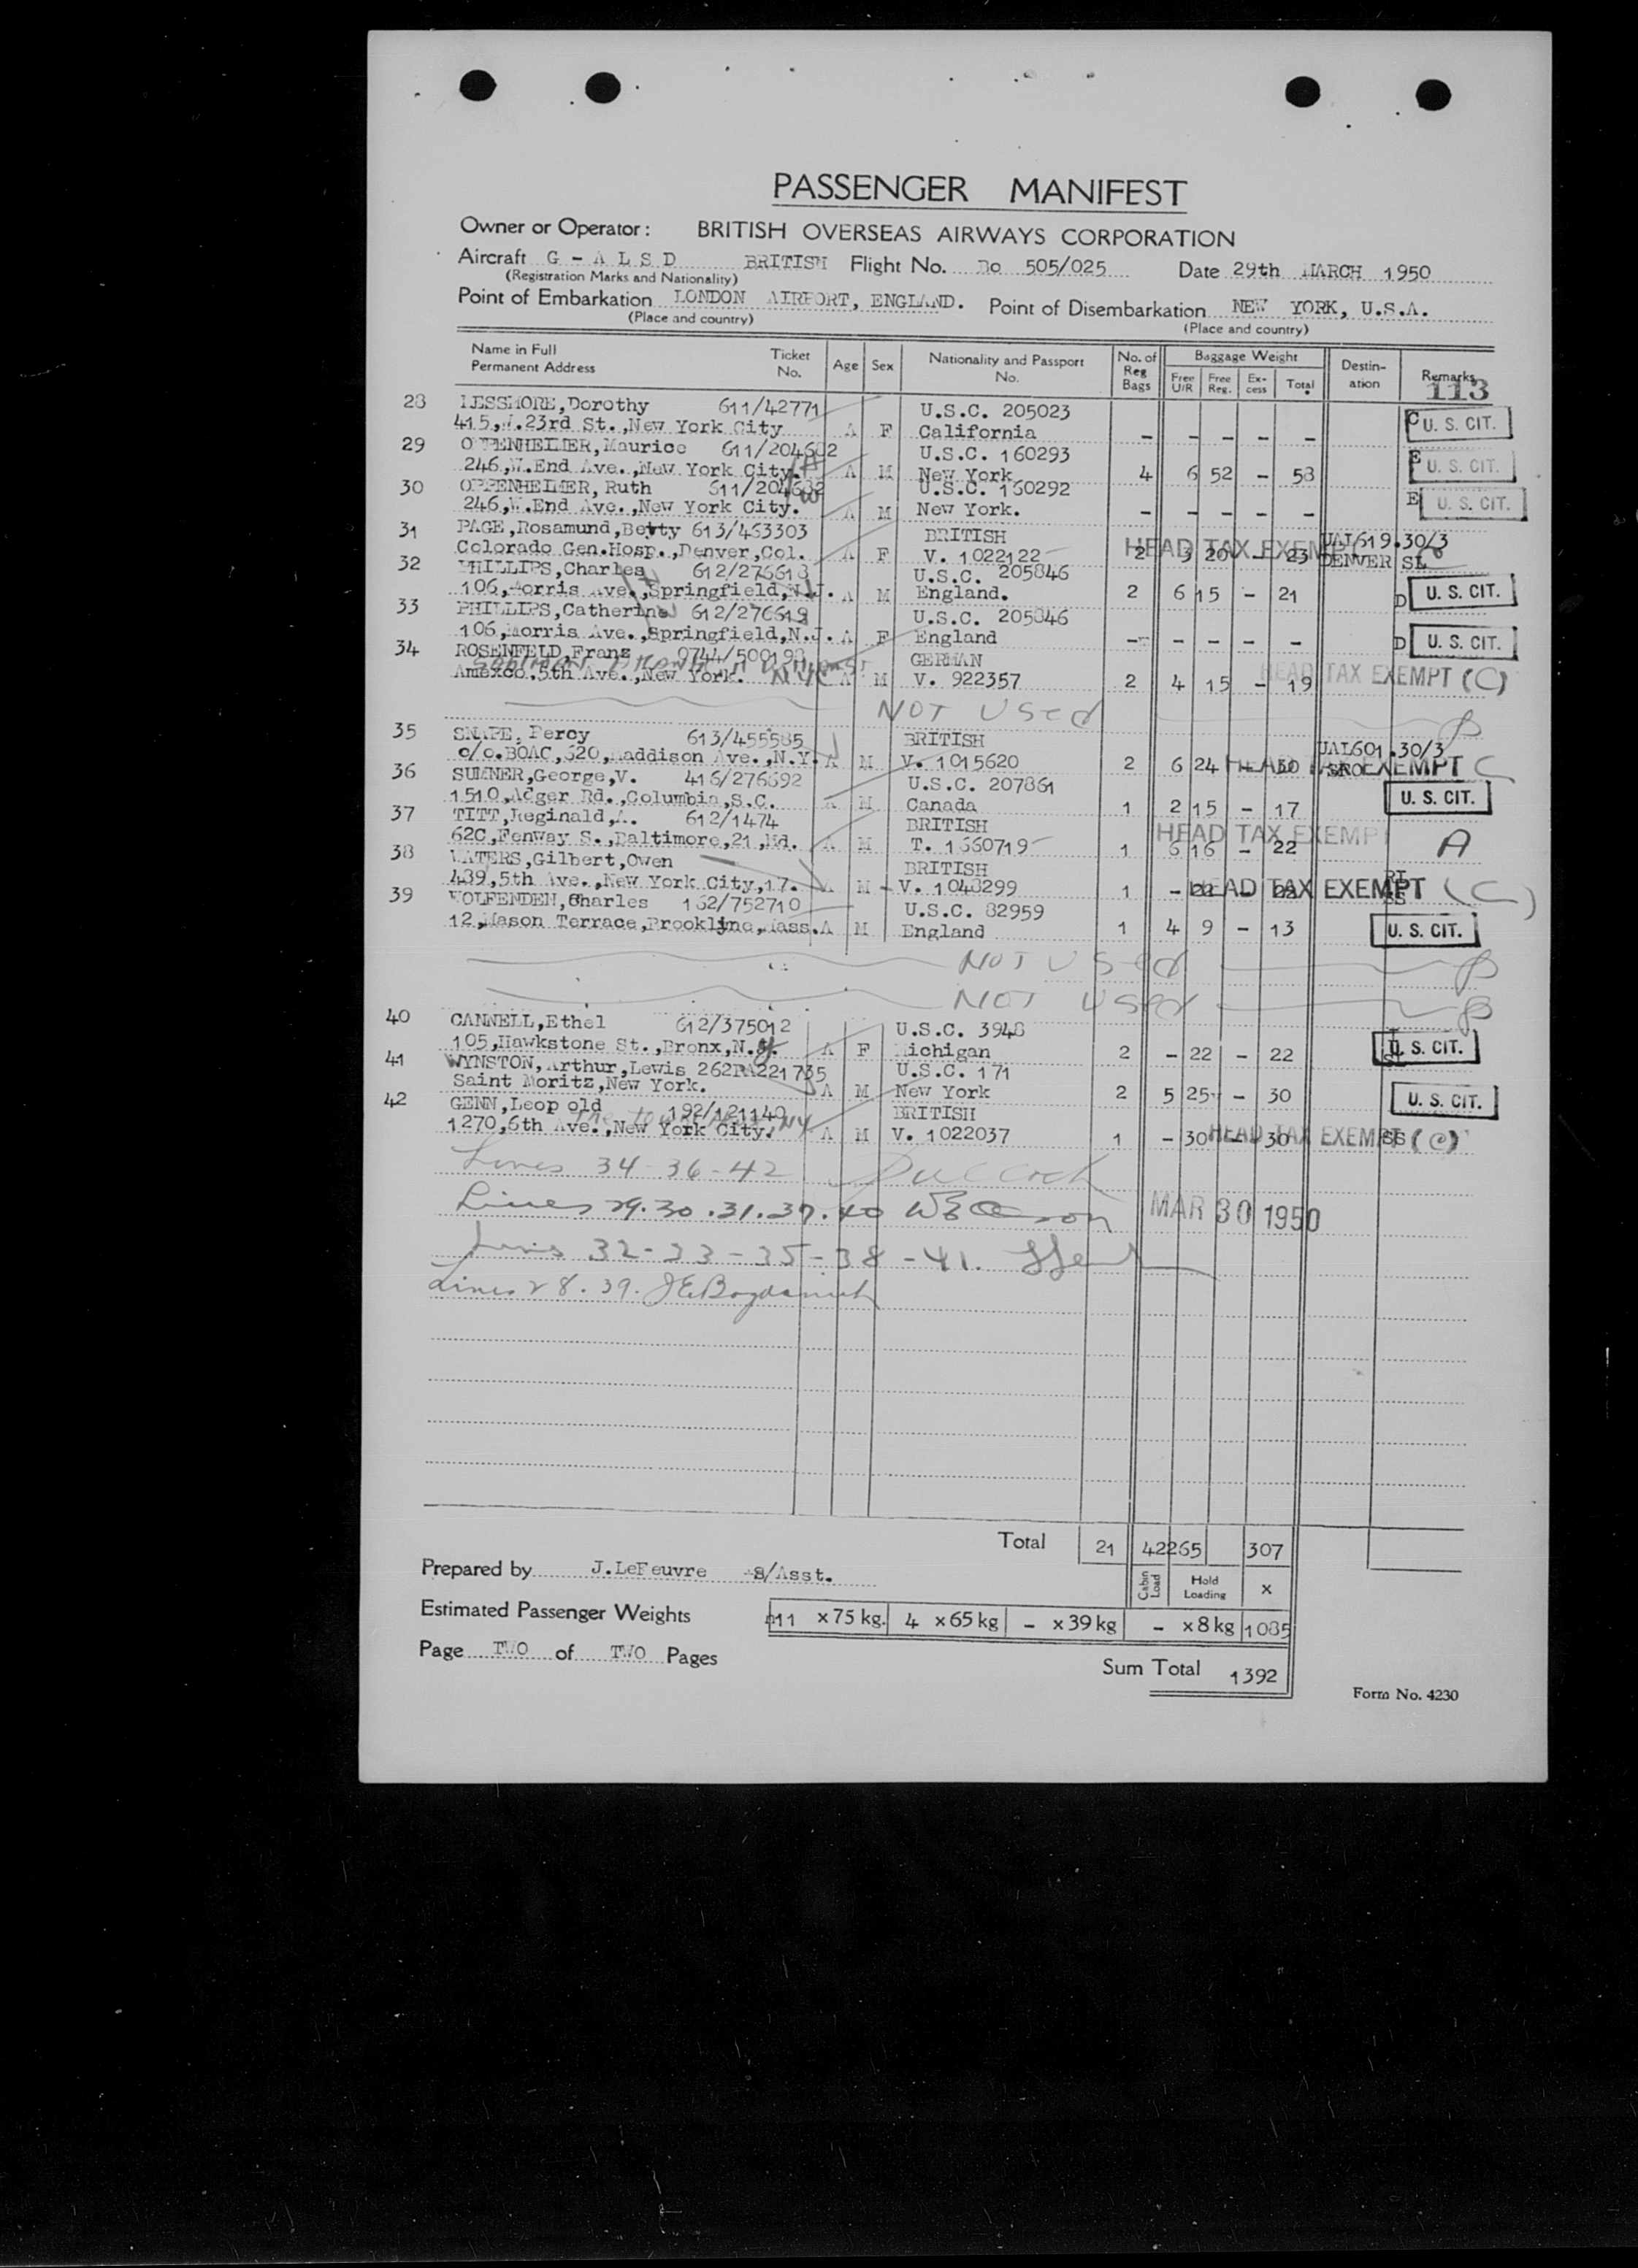 PASSENGER MANIFEST
Owner or Operator : BRITISH OVERSEAS AIRWAYS CORPORATION
Aircraft G - A L S D BRITISH Flight No. No 505/025 Date 29th MARCH 1950
(Registration Marks and Nationality)
Point of Embarkation LONDON AIRPORT, ENGLAND. Point of Disembarkation NEW YORK, U.S.A.
(Place and country) (Place and country)
Name in Full Permanent Address Ticket No. Age Sex Nationality and Passport No. No. of Reg Bags Baggage Weight Free U/R Free Reg. Ex- cess Total Destin- ation Remarks
113
28 LESSMORE,Dorothy 611/42771 U.S.C. 205023
415,W.23rd St.,New York City A F California - - - - - C U. S. CIT.
29 OPPENHEIMER,Maurice 611/204682 U.S.C. 160293
246,W.End Ave.,New York City. A M New York 4 6 52 - 58 E U. S. CIT.
30 OPPENHEIMER, Ruth 611/204682 U.S.C. 160292
246,W.End Ave.,New York City. A M New York. - - - - - E U. S. CIT.
31 PAGE,Rosamund,Betty 613/463303 BRITISH UAL619.30/3
Colorado Gen.Hosp.,Denver,Col. A F V. 1022122 2 3 20 - 23 HEAD TAX EXEMPT DENVER SL
32 PHILLIPS,Charles 612/276618 U.S.C. 205846
106,Morris Ave.,Springfield,N.J. A M England. 2 6 15 - 21 D U. S. CIT.
33 PHILLIPS,Catherine 612/276619 U.S.C. 205846
106,Morris Ave.,Springfield,N.J. A F England - - - - - D U. S. CIT.
34 ROSENFELD,Franz 0744/500198 GERMAN
Amexco.5th Ave.,New York. NYC A M V. 922357 2 4 15 - 19 HEAD TAX EXEMPT (C)
NOT USED
35 SNAPE, Percy 613/455585 BRITISH UAL601.30/3
c/o.BOAC,520,Maddison Ave.,N.Y. A M V. 1015620 2 6 24 - 30 HEAD TAX EXEMPT C
36 SUMNER,George,V. 416/276692 U.S.C. 207861
1510,Adger Rd.,Columbia,S.C. A M Canada 1 2 15 - 17 U. S. CIT.
37 TITT,Reginald,A. 612/1474 BRITISH
62C,Fenway S.,Baltimore,21,Md. A M T. 1660719 1 6 16 - 22 HEAD TAX EXEMPT A
38 WATERS,Gilbert,Owen BRITISH
489,5th Ave.,New York City,17. A M V. 1048299 1 - 22 - 22 HEAD TAX EXEMPT (C)
39 WOLFENDEN,Charles 162/752710 U.S.C. 82959
12,Mason Terrace,Brookline,Mass. A M England 1 4 9 - 13 U. S. CIT.
NOT USED
NOT USED
40 CANNELL,Ethel 612/375012 U.S.C. 3948
105,Hawkstone St.,Bronx,N.Y. A F Michigan 2 - 22 - 22 U. S. CIT.
41 WYNSTON,Arthur,Lewis 262RA221735 U.S.C. 171
Saint Moritz,New York. A M New York 2 5 25 - 30 U. S. CIT.
42 GENN,Leopold 192/121140 BRITISH
1270,6th Ave.,New York City. A M V. 1022037 1 - 30 - 30 HEAD TAX EXEMPT SS (C)
Lines 34-36-42
Lines 29.30.31.37.40 MAR 30 1950
Lines 32-33-35-38-41.
Lines 28.39. J E Bogdanich
Total 21 42 265 307
Prepared by J.LeFeuvre S/Asst. Cabin Load Hold Loading x
Estimated Passenger Weights 11 x 75 kg. 4 x 65 kg - x 39 kg - x 8 kg 1085
Page TWO of TWO Pages
Sum Total 1392
Form No. 4230